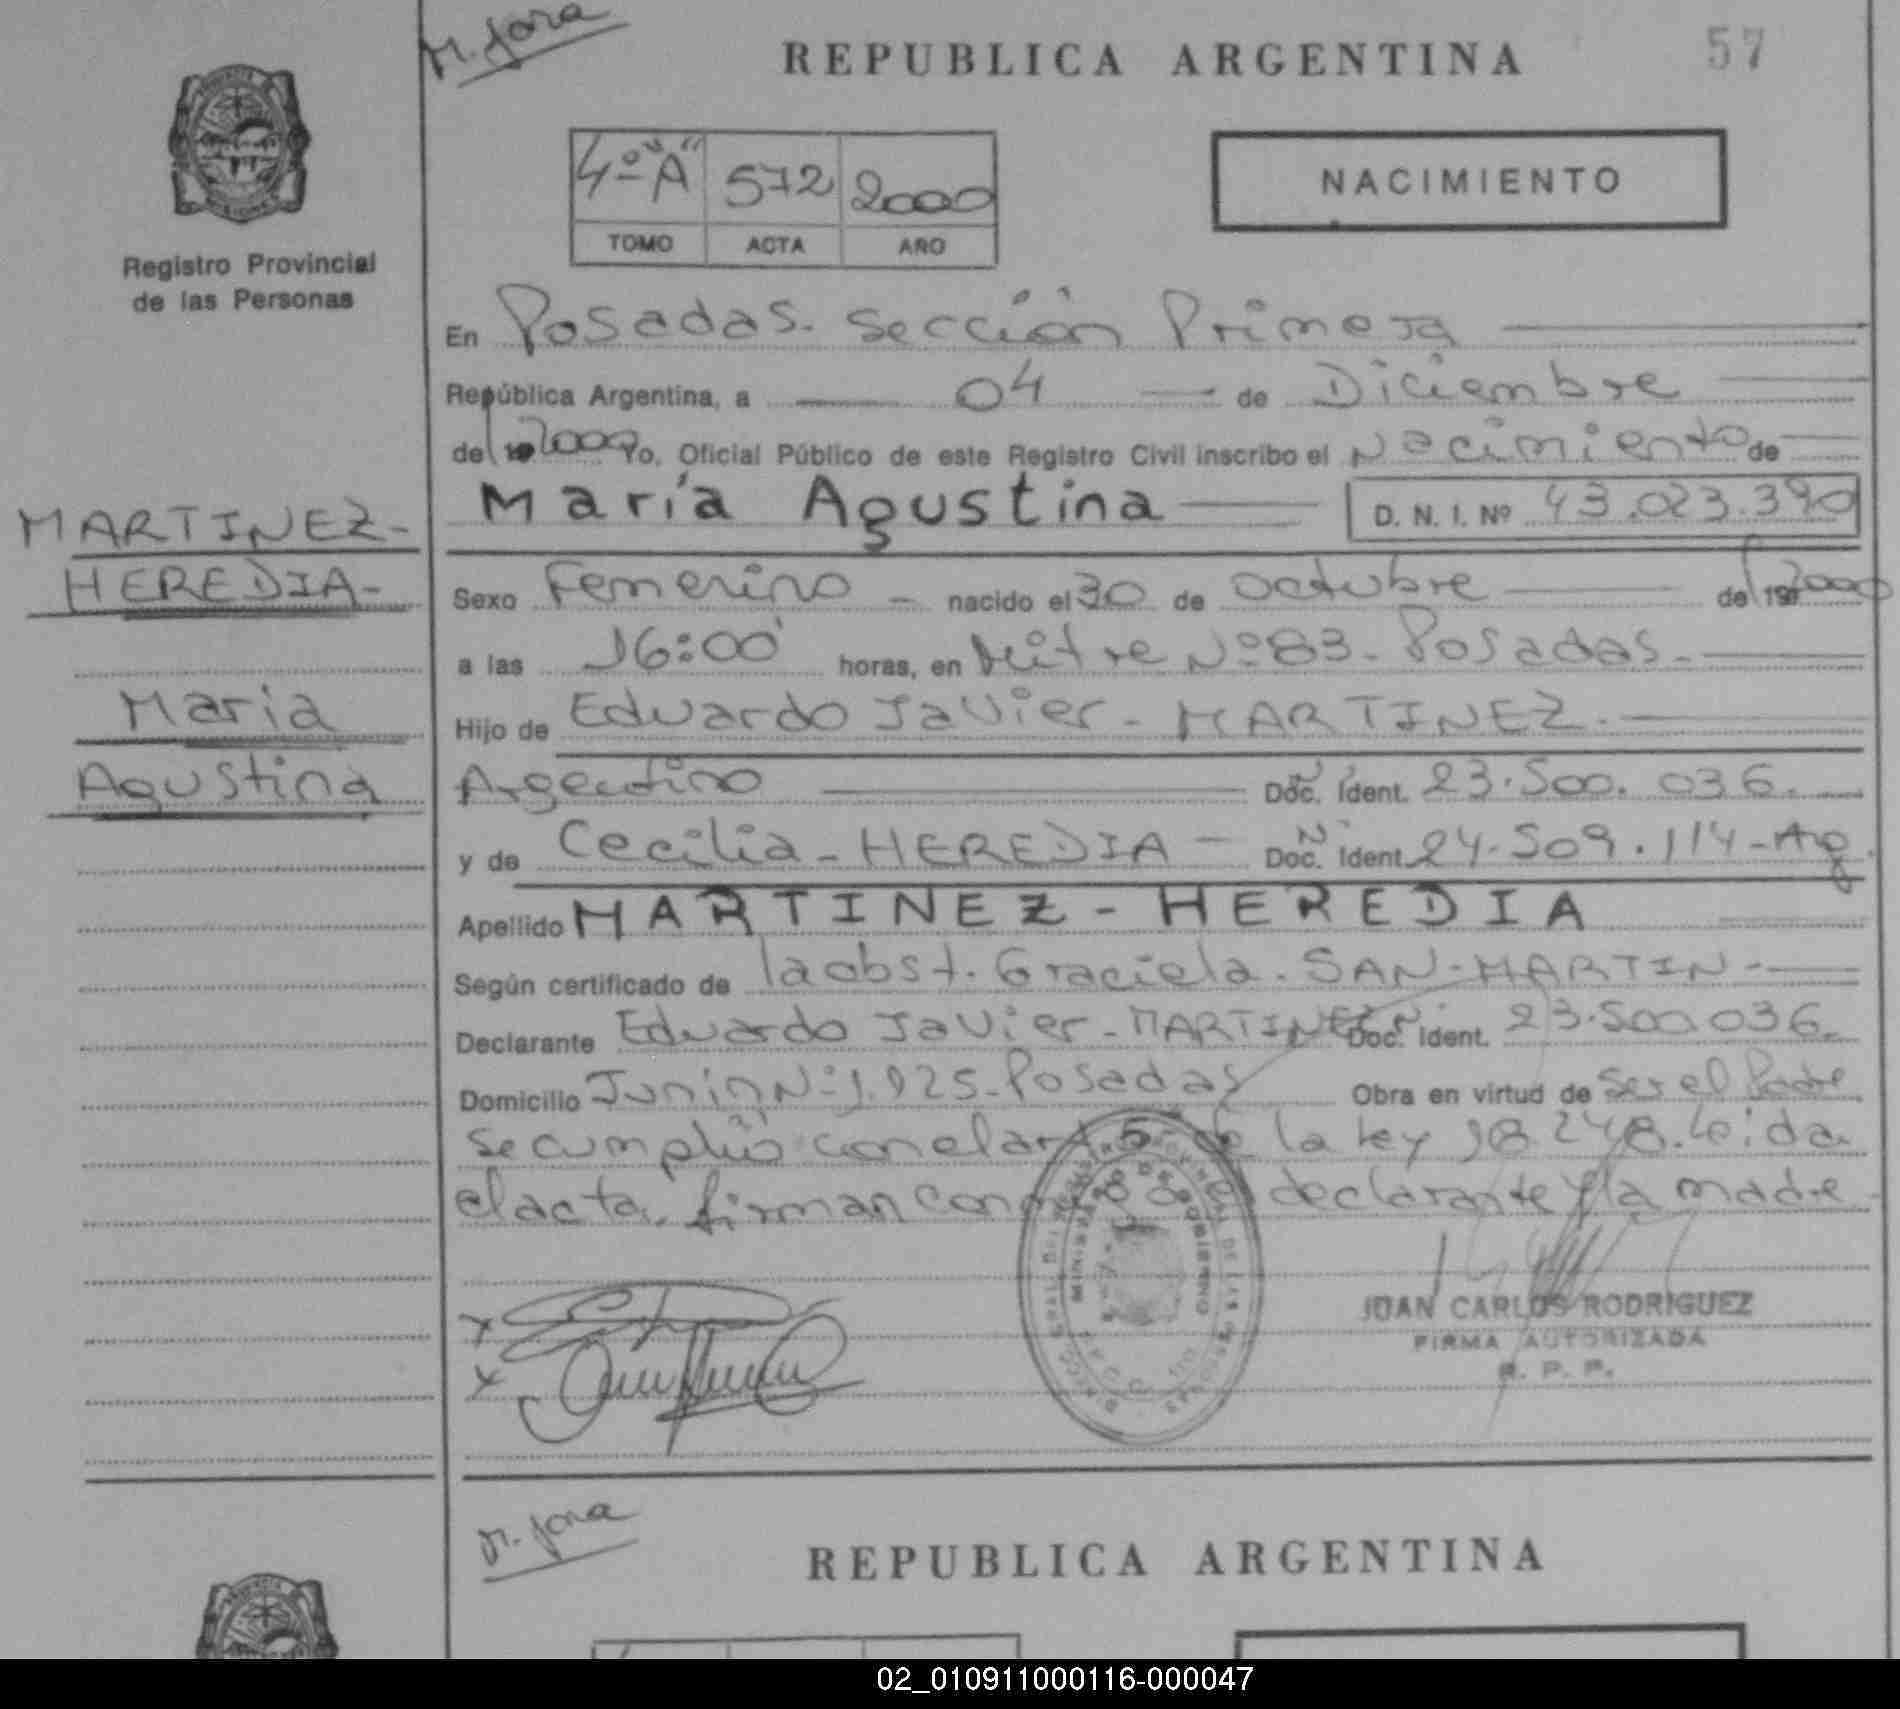 M. Jara
REPUBLICA ARGENTINA
57
4º "A" 572 2000
TOMO ACTA AÑO
NACIMIENTO
Registro Provincial
de las Personas
En Posadas. Sección Primera
República Argentina, a 04 de Diciembre
de 2000 Yo, Oficial Público de este Registro Civil inscribo el Nacimiento de
María Agustina D. N. I. Nº 43.023.390
MARTINEZ-
HEREDIA-
María
Agustina
Sexo Femenino - nacido el 30 de octubre de 2000
a las 16:00 horas, en Mitre Nº 83. Posadas.
Hijo de Eduardo Javier - MARTINEZ.
Argentino Doc. Ident. 23.500.036.
y de Cecilia - HEREDIA - Doc. Ident. 24.509.114 - Ag.
Apellido MARTINEZ - HEREDIA
Según certificado de la obst. Graciela. SAN-MARTIN-
Declarante Eduardo Javier - MARTINEZ Doc. Ident. 23.500036.
Domicilio Junin Nº 1.925 - Posadas Obra en virtud de Ser el Padre
Se cumplió con el art 5 de la Ley 18.248. Leida
el acta, firman conmigo el declarante y la madre
JUAN CARLOS RODRIGUEZ
FIRMA AUTORIZADA
R. P. P.
M. Jara
REPUBLICA ARGENTINA
02_010911000116-000047